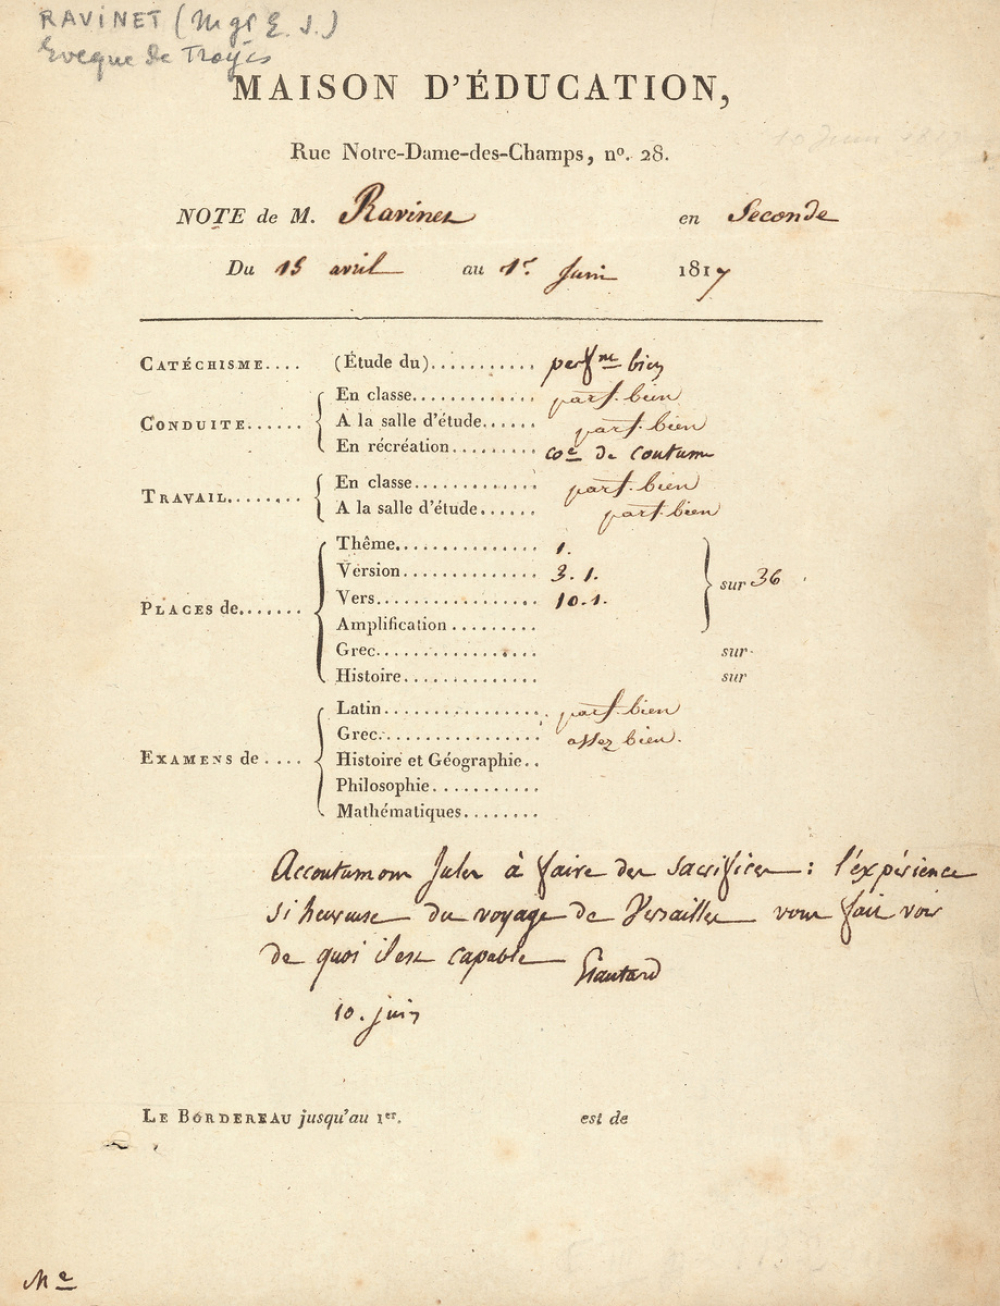 RAVINET (Mgr E. J.)
Eveque de Troyes
MAISON D'ÉDUCATION,
10 Juin 1817
Rue Notre-Dame-des-Champs, nº. 28.
NOTE de M. Ravinet en Seconde
Du 15 avril au 1er Juin 1817
CATÉCHISME.... (Étude du)........... perfme bien
CONDUITE...... En classe............. parf. bien
A la salle d'étude...... parf. bien
En récréation......... coe de coutume
TRAVAIL........ En classe............. parf. bien
A la salle d'étude...... parf. bien
PLACES de....... Thême............... 1.
Version.............. 3. 1. sur 36
Vers................. 10. 1.
Amplification.........
Grec................. sur
Histoire.............. sur
EXAMENS de.... Latin................. parf. bien
Grec................. assez bien.
Histoire et Géographie..
Philosophie...........
Mathématiques........
Accoutumons Jules à faire des sacrifices : l'expérience
si heureuse du voyage de Versailles vous fait voir
de quoi il est capable
10. juin
LE BORDEREAU jusqu'au 1er. est de
Me